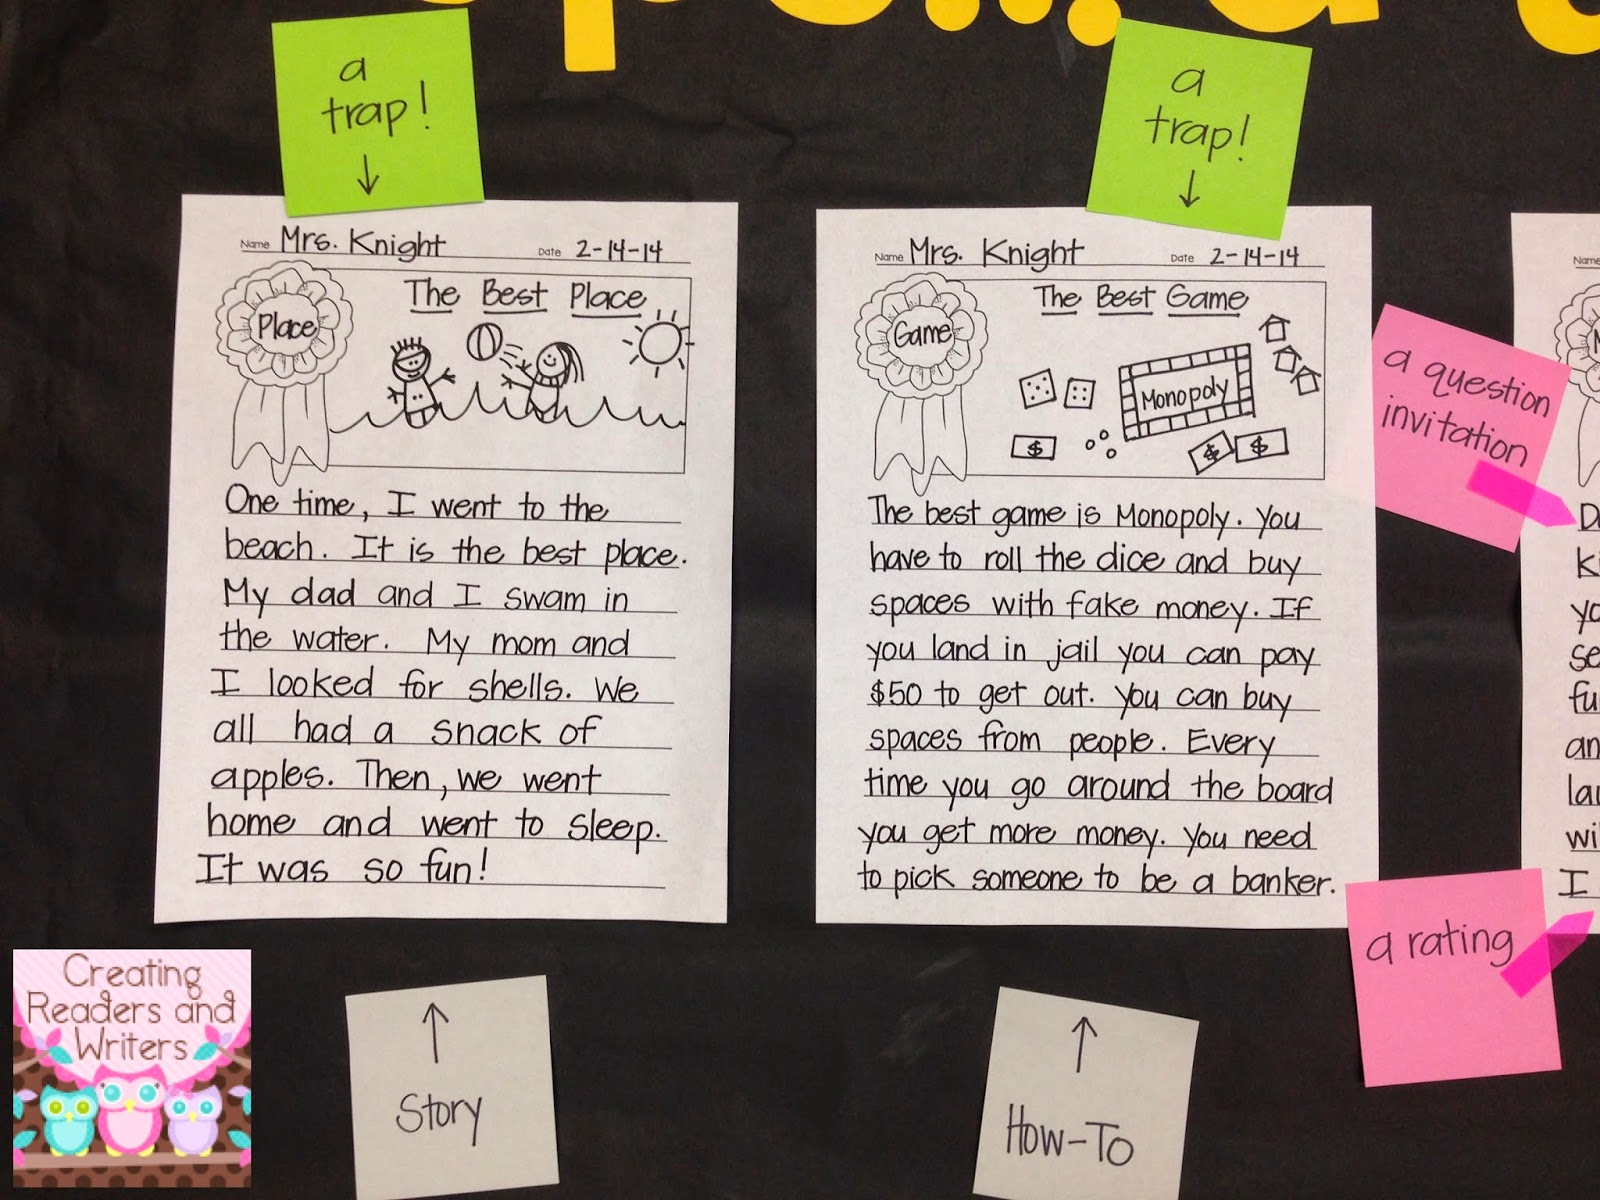 a
trap!
↓
a
trap!
↓
Name Mrs. Knight Date 2-14-14
The Best Place
Place
One time, I went to the
beach. It is the best place.
My dad and I swam in
the water. My mom and
I looked for shells. We
all had a snack of
apples. Then, we went
home and went to sleep.
It was so fun!
Name Mrs. Knight Date 2-14-14
The Best Game
Game
Monopoly
$
$
$
The best game is Monopoly. You
have to roll the dice and buy
spaces with fake money. If
you land in jail you can pay
$50 to get out. You can buy
spaces from people. Every
time you go around the board
you get more money. You need
to pick someone to be a banker.
a question
invitation
a rating
Name
I
↑
Story
↑
How-To
Creating
Readers and
Writers